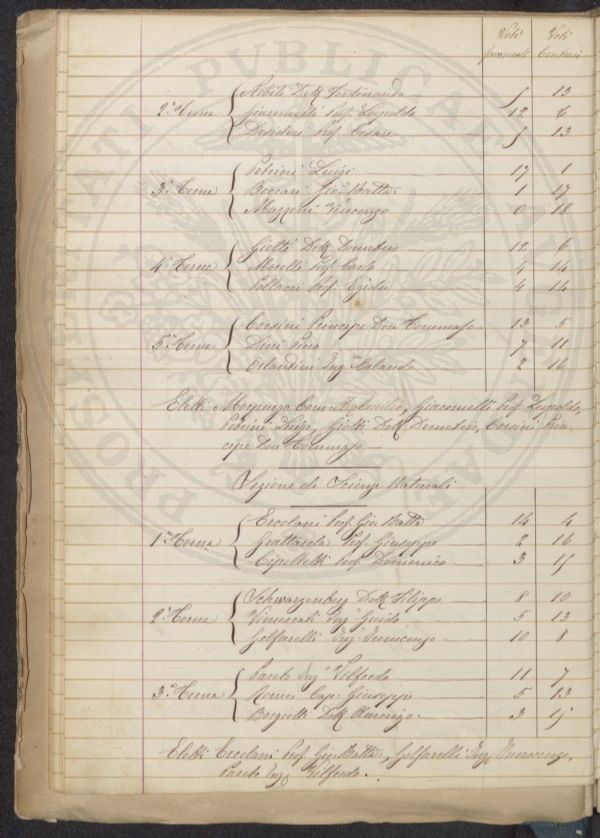 Voti Voti
favorevoli Contrari
2ª Terna Nobili Dott. Ferdinando 5 13
Giacomelli Prof. Leopoldo 12 6
Desideri Prof. Cesare 5 13
3ª Terna Petrini Luigi 17 1
Beccari Gio. Batta. 1 17
Mazzoni Vincenzo 0 18
4ª Terna Giotti Dott. Demetrio 12 6
Morelli Prof. Carlo 4 14
Pollacci Prof. Egidio 4 14
5ª Terna Corsini Principe Don Tommaso 13 5
Dini Piero 7 11
Orlandini Ing. Orlando 2 16
Eletti Com. Giacomelli Prof. Leopoldo,
Petrini Luigi, Giotti Dott. Demetrio, Corsini Prin-
cipe Don Tommaso
Sezione di Scienze Naturali
1ª Terna Ercolani Prof. Gio. Batta 14 4
Grattarola Prof. Giuseppe 2 16
Cipolletti Prof. Domenico 3 15
2ª Terna Schwarzenberg Dott. Filippo 8 10
Vimercati Ing. Guido 5 13
Golfarelli Ing. Innocenzo 10 8
3ª Terna Pareto Ing. Vilfredo 11 7
Cap. Giuseppe 5 13
Dott. 3 15
Eletti Ercolani Prof. Gio. Batta., Golfarelli Ing. Innocenzo,
Pareto Ing. Vilfredo.
PROSPERITATI PUBLICAE AUGENDAE